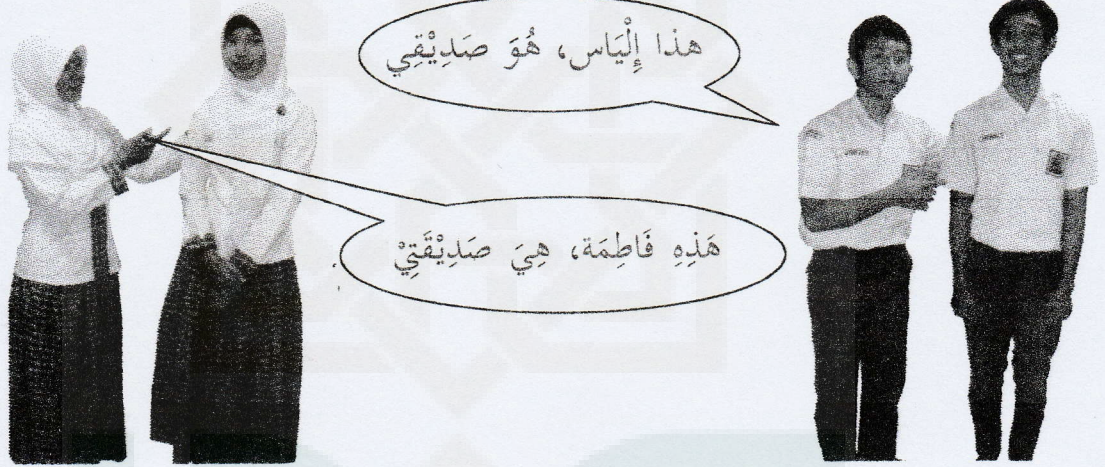 هذا إِلْيَاس، هُوَ صَدِيْقِي
هَذِهِ فَاطِمَة، هِيَ صَدِيْقَتِيْ